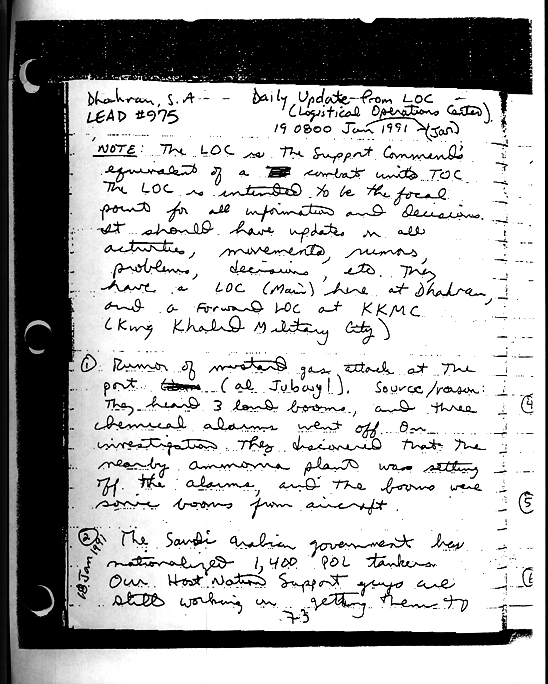 Dhahran, S.A -- Daily Update from LOC -
(Logistical Operations Center)
LEAD #975
19 0800 Jan 1991 (Jan)
NOTE: The LOC is The Support Command's
equivalent of a combat units TOC
The LOC is intended to be the focal
point for all information and decisions.
It should have updates on all
activities, movements, rumors,
problems, decisions, etc. They
have a LOC (Main) here at Dhahran,
and a Forward LOC at KKMC
(King Khalid Military City)
① Rumor of mustard gas attack at The
port (al Jubayl). Source/reason:
They heard 3 loud booms, and three
chemical alarms went off. On
investigation They discovered that the
nearby ammonia plant was setting
off the alarms, and the booms were
sonic booms from aircraft.
② The Saudi Arabian government has
18 Jan 1991
nationalized 1,400 POL tankers
Our Host Nation Support guys are
still working on getting them to
73
④
⑤
⑥